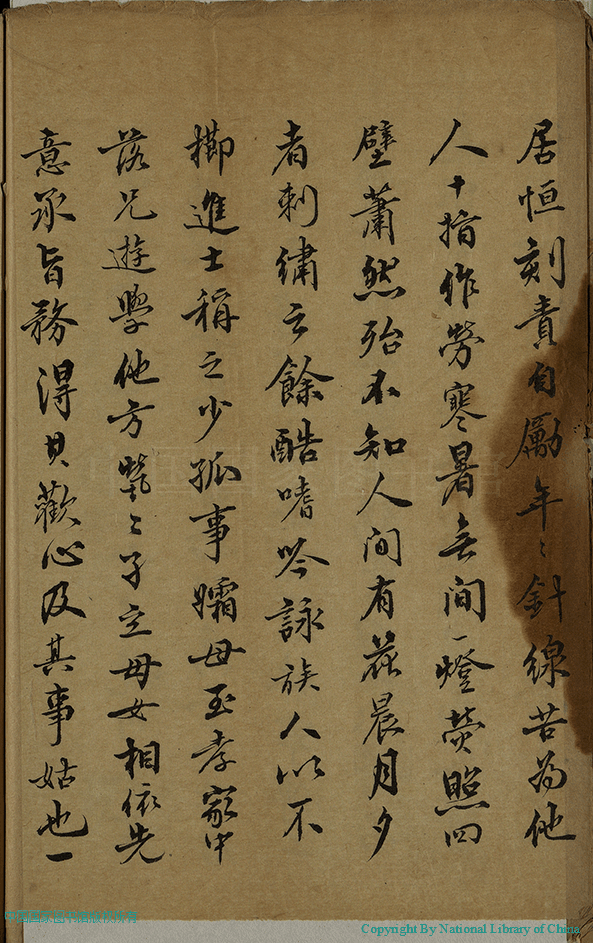 居恒刻責自勵年〻針線苦為他
人十指作勞寒暑無間一燈熒照四
壁蕭然殆不知人间有花晨月夕
者刺繡之餘酷嗜吟詠族人以不
櫛進士稱之少孤事孀母至孝家中
落兄遊學他方煢〻孑立母女相依先
意承旨務得其歡心及其事姑也一
中国国家图书馆
Copyright By National Library of China